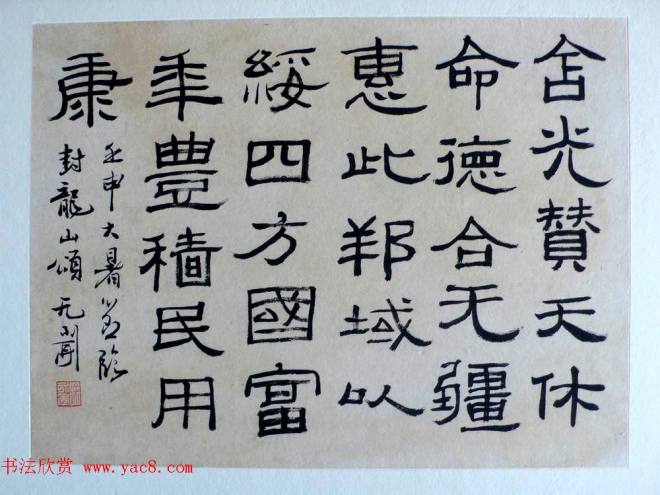 含光贊天休
命德合无疆
惠此邦域以
綏四方國富
年豐穡民用
康
壬申大暑 臨
封龍山頌
书法欣赏 www.yac8.com